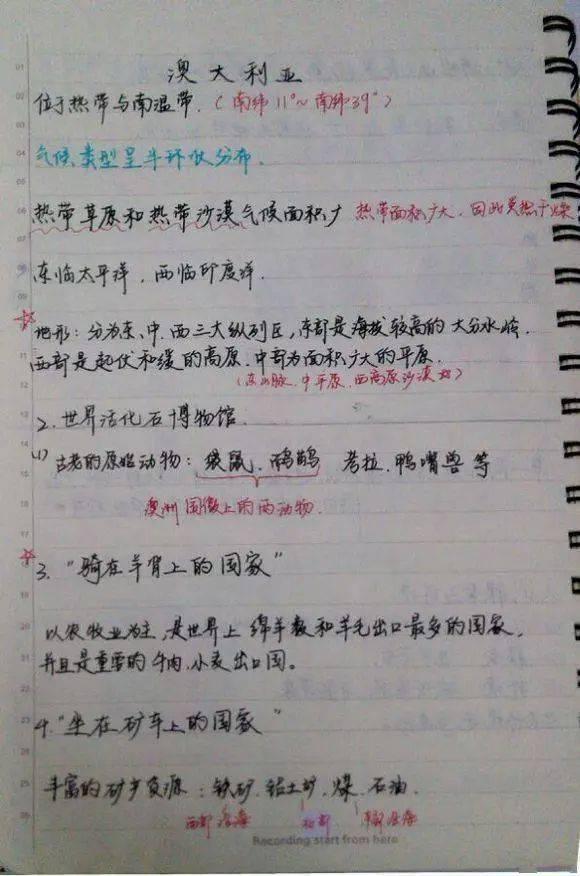 澳大利亚
位于热带与南温带.(南纬11°~南纬39°)
气候类型呈半环状分布.
热带草原和热带沙漠气候面积广 热带面积广大.因此炎热干燥
东临太平洋,西临印度洋.
☆地形:分为东、中、西三大纵列区,东部是海拔较高的大分水岭.
西部是起伏和缓的高原.中部为面积广大的平原.
(东山脉.中平原.西高原沙漠)
2.世界活化石博物馆.
(1)古老的原始动物:袋鼠.鸸鹋 考拉.鸭嘴兽等
澳洲国徽上的两动物.
☆3."骑在羊背上的国家"
以农牧业为主,是世界上绵羊数和羊毛出口最多的国家,
并且是重要的牛肉,小麦出口国。
4."坐在矿车上的国家"
丰富的矿产资源:铁矿.铝土矿.煤.石油.
西部沿海 北部 东部沿海
Recording start from here